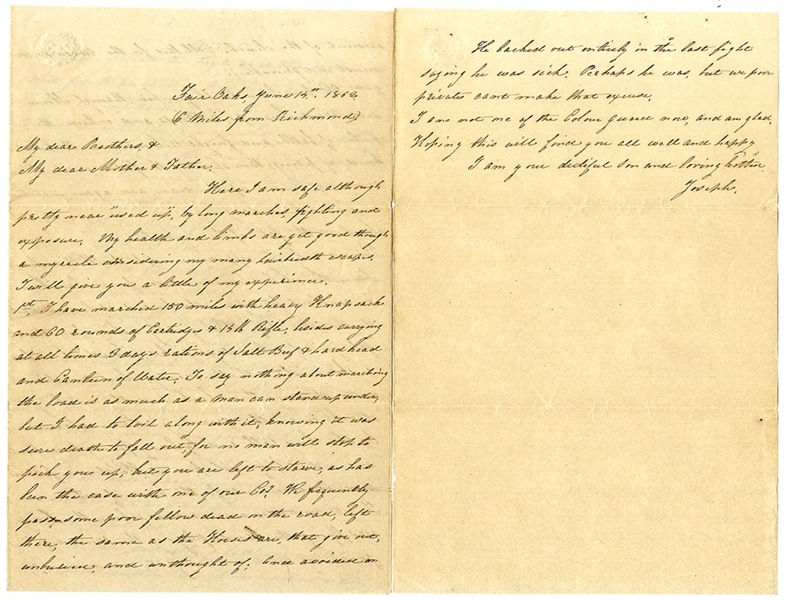 Fair Oaks, June 14th 1862
6 Miles from Richmond
My dear Brothers, &
My dear Mother & Father,
Here I am safe although
pretty near "used up", by long marches fighting and
exposure. My health and limbs are yet good though
a myracle considering my many hairbreadth escapes.
I will give you a little of my experience.
1st, I have marched 150 miles with heavy Knapsack
and 60 rounds of Cartridges & Rifle, besides carrying
at all times 3 days rations of Salt Beef & hard head
and Canteen of Water, To say nothing about marching
the load is as much as a man can stand up under,
but I had to toil along with it, knowing it was
sure death to fall out, for no man will stop to
pick you up, but you are left to starve, as has
been the case with one of our Co? We frequently
pass some poor fellow dead on the road, left
there, the same as the Horses are, that give out,
unburied, and unthought of. and
He backed out entirely in the last fight
saying he was sick. Perhaps he was, but we poor
privates cant make that excuse.
I am not one of the Colour guard now, and am glad.
Hoping this will find you all well and happy
I am your dutiful Son and loving Brother
Joseph.